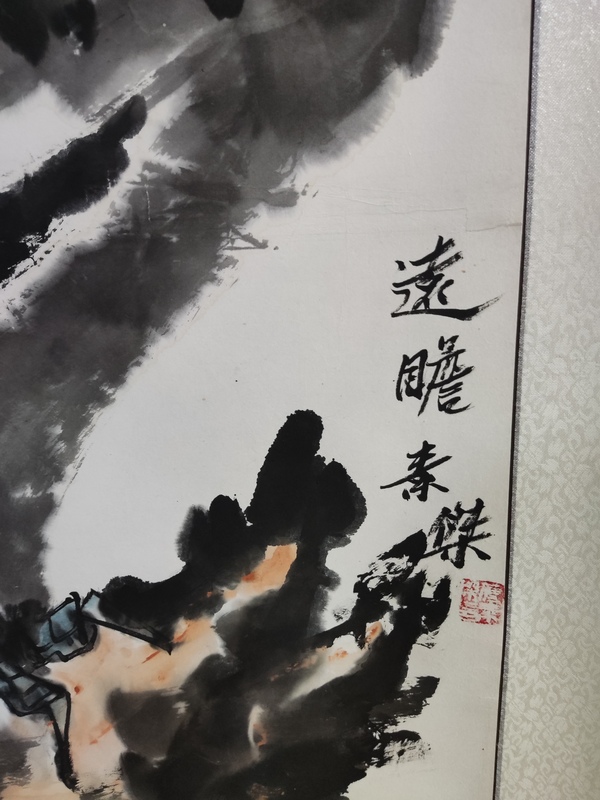 遠瞻秦傑